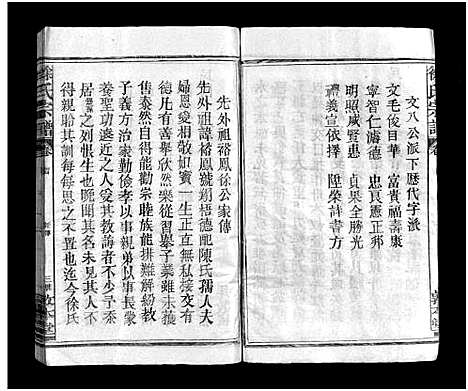 徐氏宗譜
文八公派下歷代字派
文毛俊日華　富貴福壽康
寧智仁濬德　忠良憲正邦
明照咸賢惠　貞果全勝光
禮義宣依擇　陞榮詩書方
先外祖裕鳳徐公家傳
先外祖諱裕鳳號翔梧德配陳氏孺人夫
婦恩愛相敬如賓一生正直無私接交有
德凡有善舉欣然樂從習舉子業雖未獲
售泰然自得能勸宗睦族能排難解紛教
子義方治家勤儉孝以事親弟以事長蒙
養聖功遠近之人爱其教誨多士成材
居之列恨生也晚聞其名未見其人不
得親聆其訓每每思之不置也迄今徐氏
徐氏宗譜
卷
敦本堂